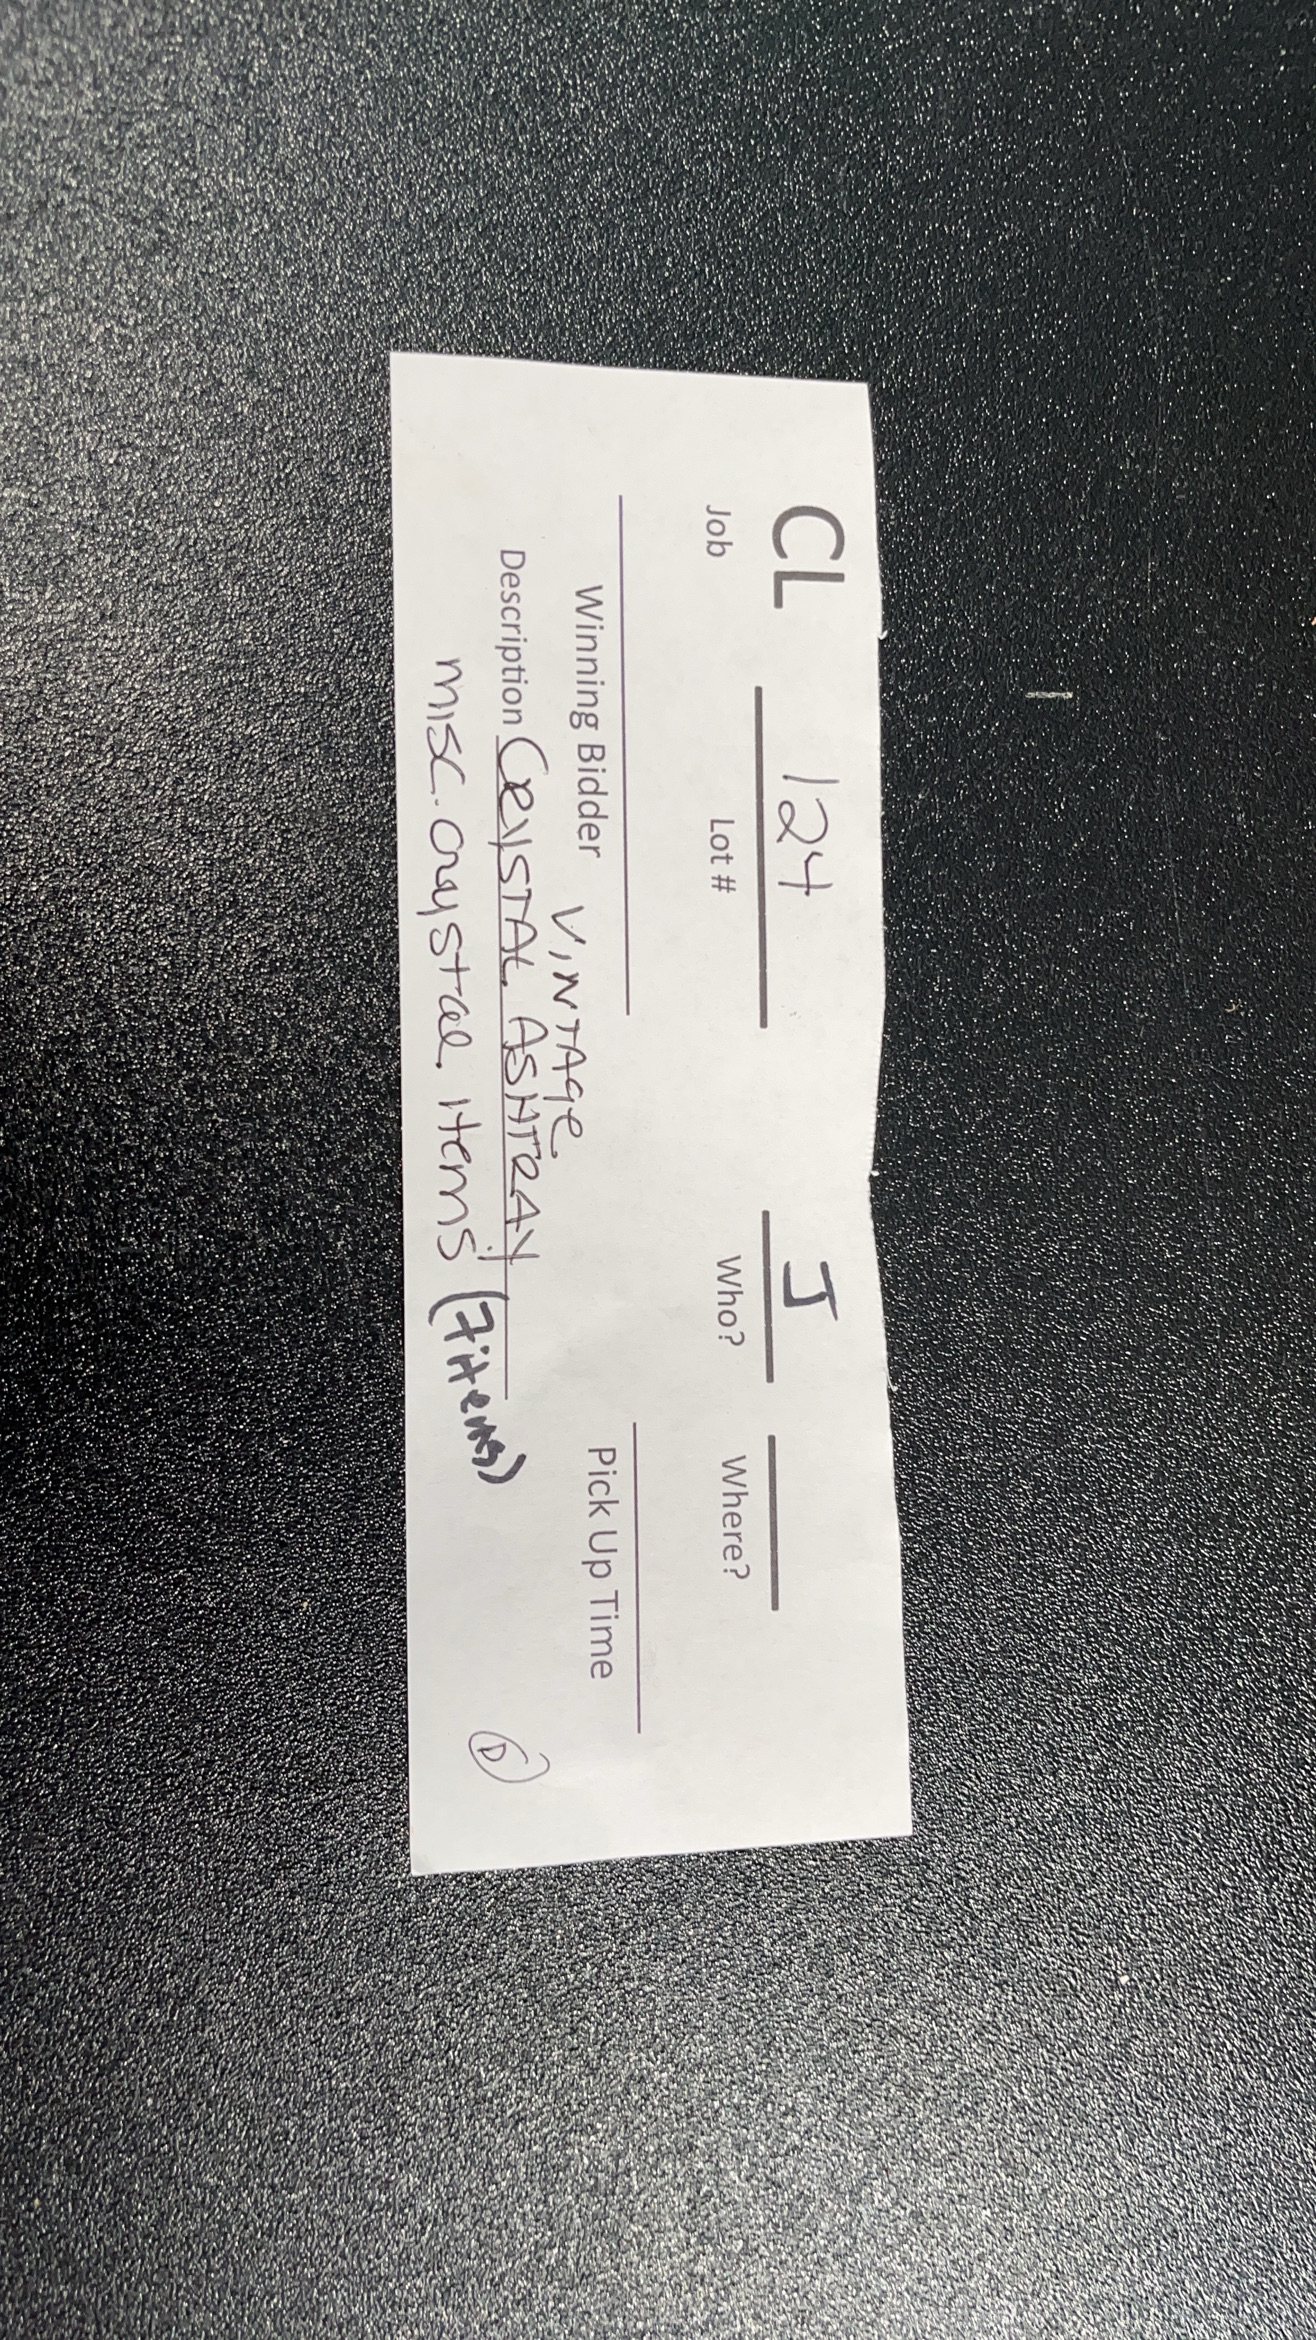 CL 124 J
Job Lot # Who? Where?
Winning Bidder Pick Up Time
VINTAGE
Description CRYSTAL ASHTRAY
misc. crystal items (7 items)
D